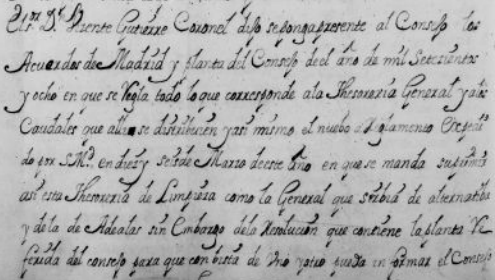 El Sr. Dn. Vicente Gutierre Coronel dijo se ponga presente al Consejo los
Acuerdos de Madrid y planta del Consejo de el año de mil Setecientos
y ocho en que se Regla todo lo que corresponde ala Thesoreria General y alos
Caudales que alli se distribuien y asi mismo el nuebo Reglamento Expedi
do por S.M. en diez y seis de Marzo de este año en que se manda suprimir
asi esta Thesoreria de Limpieza como la General que serbia de alternatiba
y dela de Adealas sin Embargo dela Resolucion que contiene la planta Re
ferida del consejo para que con bista de Uno y otro pueda informar el Consejo